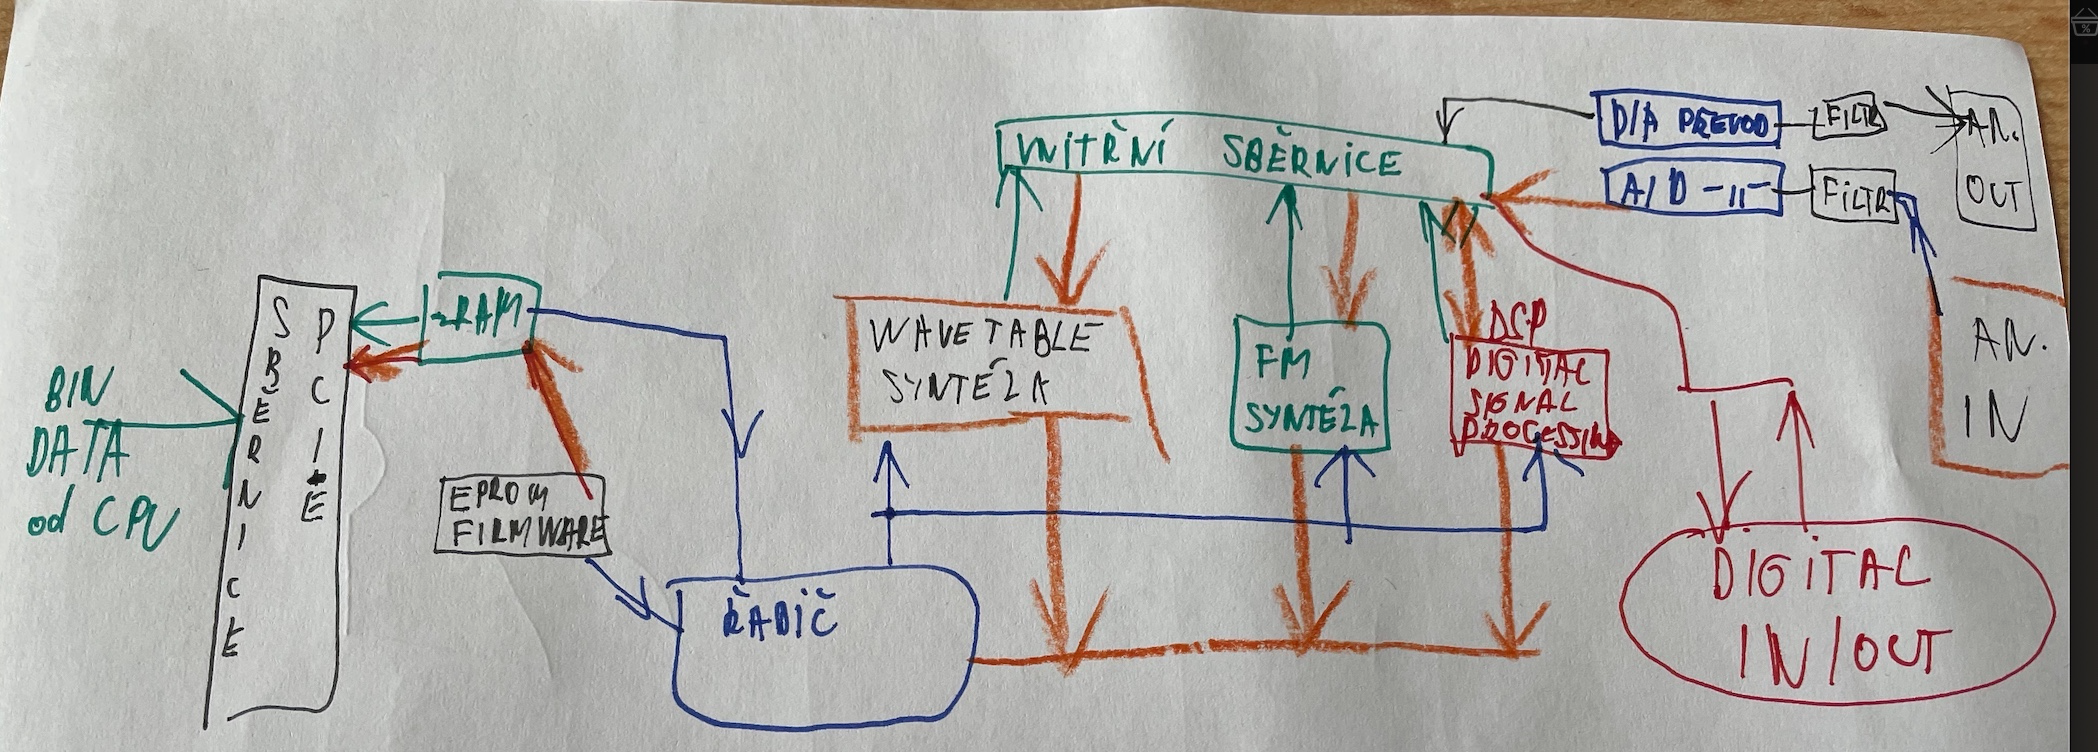 BIN
DATA
od CPU
SBĚRNICE
PCI-E
RAM
EPROM
FILMWARE
ŘADIČ
VNITŘNÍ SBĚRNICE
WAVETABLE
SYNTÉZA
FM
SYNTÉZA
DSP
DIGITAL
SIGNAL
PROCESSING
D/A PŘEVOD
FILTR
AN.
OUT
A/D -11-
FILTR
AN.
IN
DIGITAL
IN/OUT